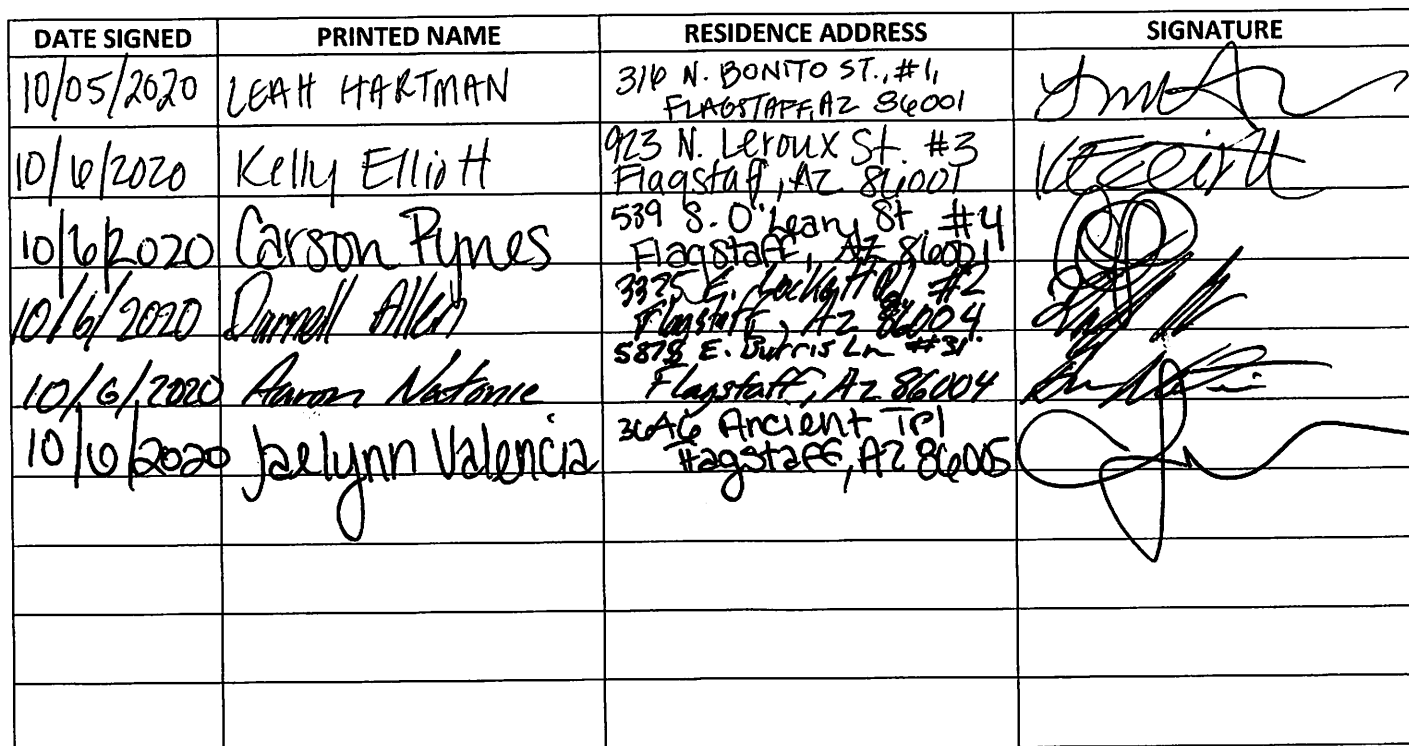 DATE SIGNED PRINTED NAME RESIDENCE ADDRESS SIGNATURE
10/05/2020 LEAH HARTMAN 316 N. BONITO ST., #1,
FLAGSTAFF, AZ 86001
10/6/2020 Kelly Elliott 923 N. Leroux St. #3
Flagstaff, AZ 86001
10/6/2020 Carson Pynes 539 S. O'Leary St #4
Flagstaff, AZ 86001
10/6/2020 Darnell Allen 3325 E. #2
Flagstaff, AZ 86004
5878 E. Burris Ln #31
10/6/2020 Aaron Natonie Flagstaff, Az 86004
3646 Ancient Trl
10/6/2020 Jaelynn Valencia Flagstaff, AZ 86005